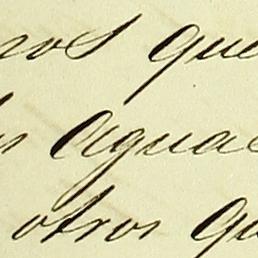 ros que
s aguas
otros qu